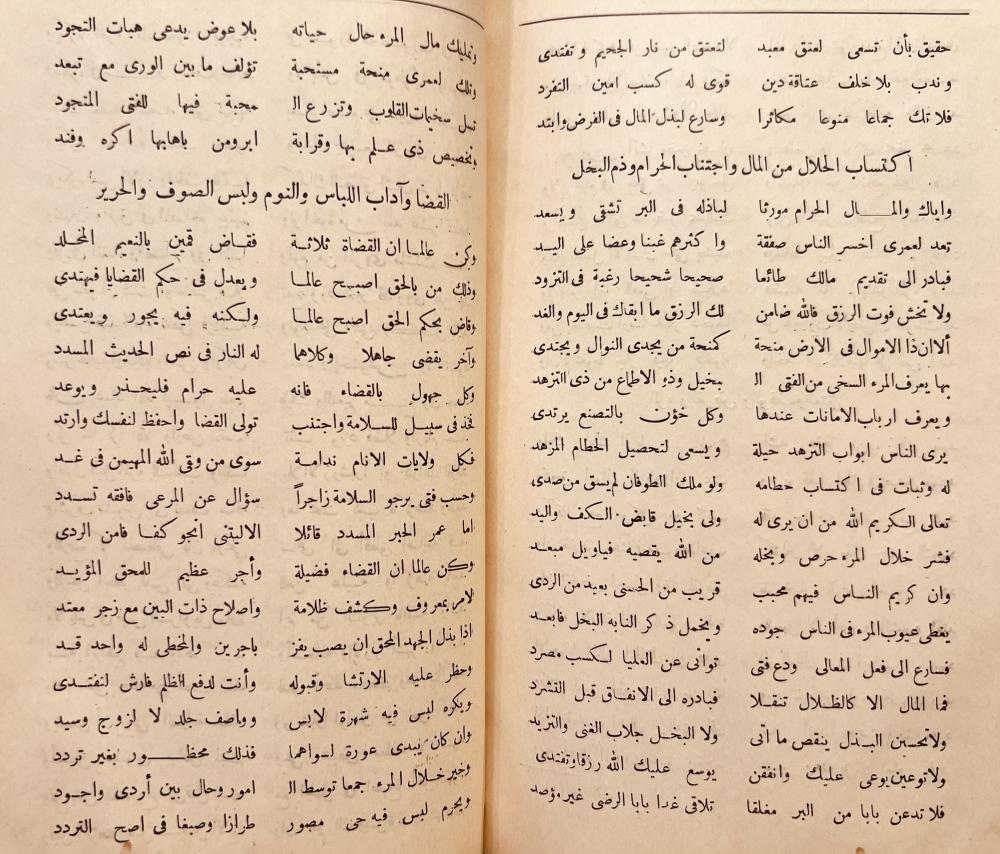 حقيق بأن تسعى لعتق معبد لتعتق من نار الجحيم وتفتدى
وندب بلا خلف عتاقة دين قوى له كسب امين التفرد
فلا تك جماعا منوعا مكاثرا وسارع لبذل المال فى الفرض وابتد
اكتساب الحلال من المال واجتناب الحرام وذم البخل
واياك والمال الحرام مورثا لباذله فى البر تشقى ويسعد
تعد لعمرى اخسر الناس صفقة واكثرهم غبنا وعضا على اليد
فبادر الى تقديم مالك طائعا صحيحا شحيحا رغبة فى التزود
ولا تخش فوت الرزق فالله ضامن لك الرزق ما ابقاك فى اليوم والغد
ألا ان ذا الاموال فى الارض منحة كمنحة من يجدى النوال ويجتدى
بها يعرف المرء السخى من الفتى ال بخيل وذو الاطماع من ذى التزهد
ويعرف ارباب الامانات عندها وكل خؤن بالتصنع يرتدى
يرى الناس ابواب التزهد حيلة ويسعى لتحصيل الحطام المزهد
له وثبات فى اكتساب حطامه ولو ملك الطوفان لم يسق من صدى
تعالى الكريم الله من ان يرى له ولى بخيل قابض الكف واليد
فشر خلال المرء حرص وبخله من الله يقصيه فياويل مبعد
وان كريم الناس فيهم محبب قريب من الحسنى بعيد من الردى
يغطى عيوب المرء فى الناس جوده ويخمل ذكر النابه البخل فابعد
فسارع الى فعل المعالى ودع فتى توانى عن العليا لكسب مصرد
فما المال الا كالظلال تنقلا فبادره الى الانفاق قبل التشرد
ولا تحسبن البذل ينقص ما اتى ولا البخل جلاب الغنى والتزيد
ولا توعين يوعى عليك وانفقن يوسع عليك الله رزقا وتفتدى
فلا تدعن بابا من البر مغلقا تلاقى غدا بابا الرضى غير مؤصد
وتمليك مال المرء حال حياته بلا عوض يدعى هبات التجود
وتلك لعمرى منحة مستحبة تؤلف ما بين الورى مع تبعد
تسل سخيمات القلوب وتزرع ال محبة فيها للفتى المتجود
وتخصيص ذى علم بها وقرابة ابر ومن باهابها اكره وفند
القضا وآداب اللباس والنوم ولبس الصوف والحرير
وكن عالما ان القضاة ثلاثة فقاض قمين بالنعيم المخلد
وذلك من بالحق اصبح عالما ويعدل فى حكم القضايا فيهتدى
وقاض بحكم الحق اصبح عالما ولكنه فيه يجور ويعتدى
وآخر يقضى جاهلا وكلاهما له النار فى نص الحديث المسدد
وكل جهول بالقضاء فانه عليه حرام فليحذر ويوعد
فخذ فى سبيل للسلامة واجتنب تولى القضا واحفظ لنفسك وارتد
فكل ولايات الانام ندامة سوى من وقى الله المهيمن فى غد
وحسب فتى يرجو السلامة زاجراً سؤال عن المرعى فافقه تسدد
اما عمر الحبر المسدد قائلا الا ليتنى انجو كفا فا من الردى
وكن عالما ان القضاء فضيلة وأجر عظيم للمحق المؤيد
لامر بمعروف وكشف ظلامة واصلاح ذات البين مع زجر معتد
اذا بذل الجهد المحق ان يصب يفز باجرين والمخطى له واحد قد
وحظر عليه الارتشا وقبوله وأنت لدفع الظلم فارش لتفتدى
ويكره لبس فيه شهرة لابس وواصف جلد لا لزوج وسيد
وان كان يبدى عورة لسواهما فذلك محظور بغير تردد
وخير خلال المرء جمعا توسط ال امور وحال بين أردى واجود
ويحرم لبس فيه حى مصور طرازا وصبغا فى اصح التردد